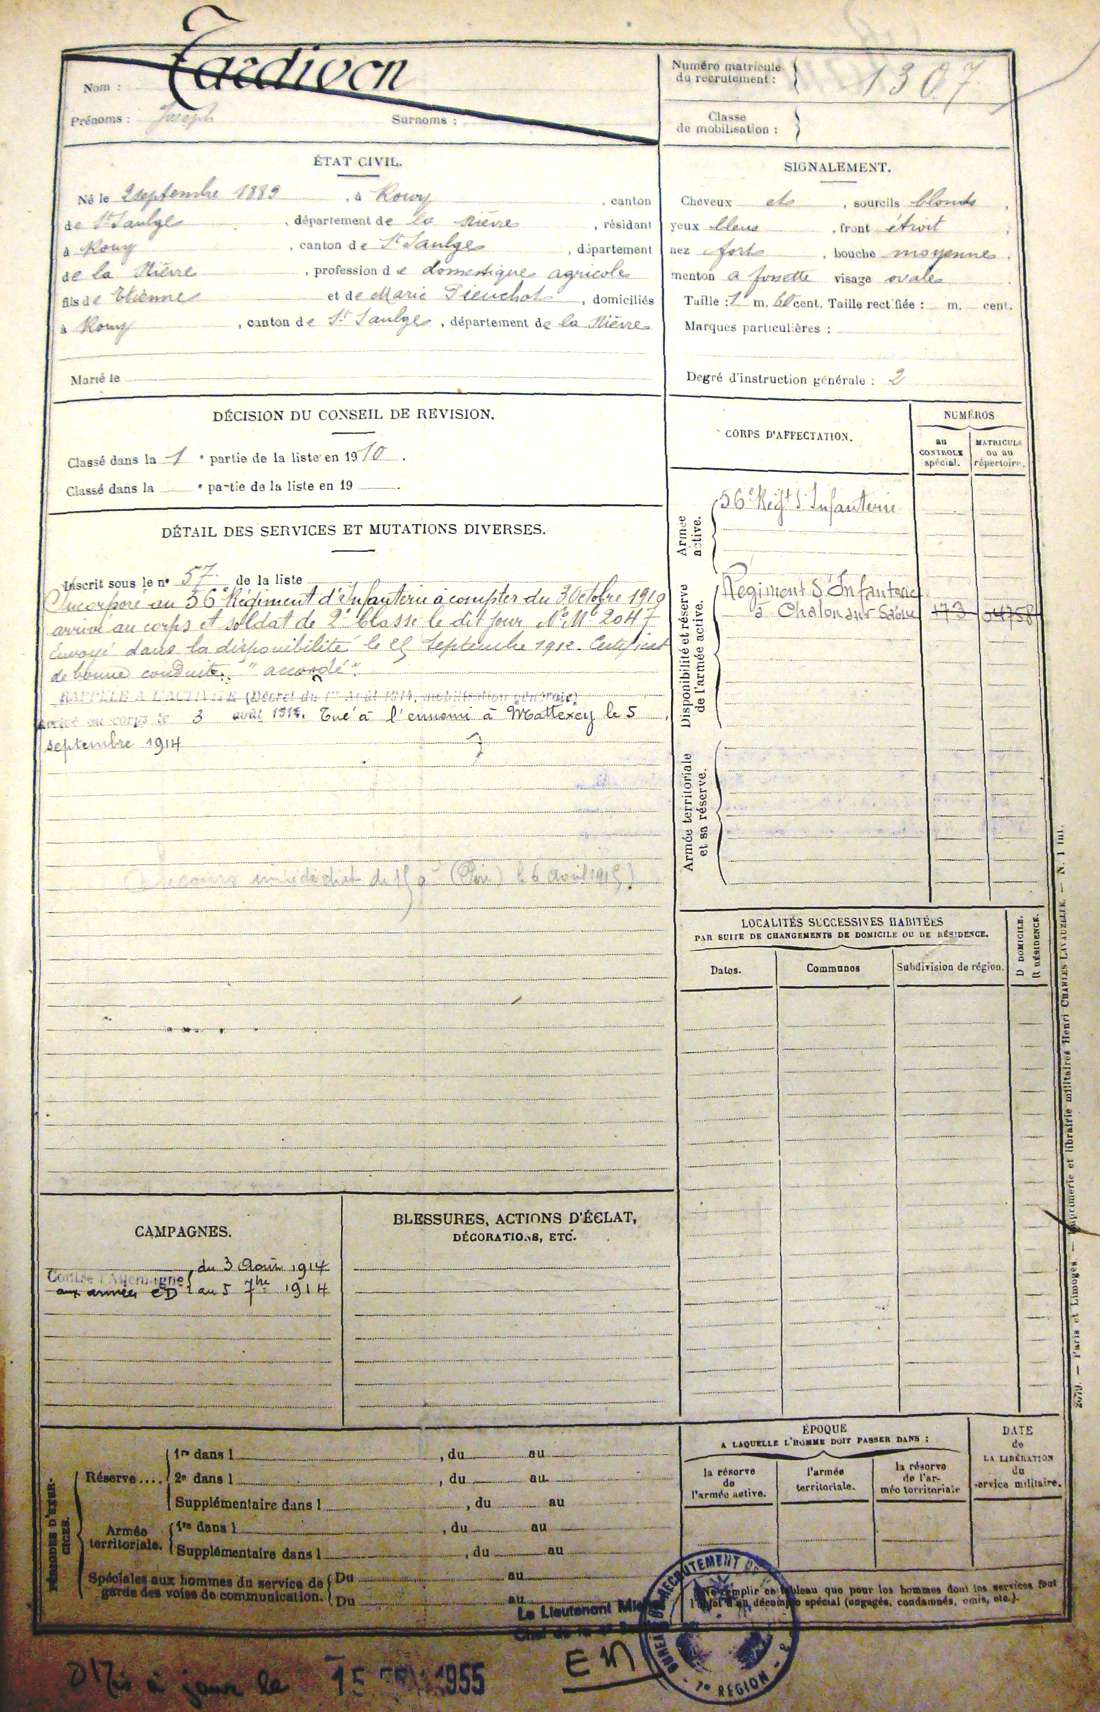 Nom : Tardivon
Prénoms : Joseph Surnoms :
Numéro matricule du recrutement : 1307
Classe de mobilisation :
ÉTAT CIVIL.
Né le 2 septembre 1889, à Rouy, canton
de St Saulge, département de la Nièvre, résidant
à Rouy, canton de St Saulge, département
de la Nièvre, profession de domestique agricole
fils de Etienne et de Marie Pieuchot, domiciliés
à Rouy, canton de St Saulge, département de la Nièvre
Marié le
SIGNALEMENT.
Cheveux et, sourcils blonds,
yeux bleus, front étroit,
nez fort, bouche moyenne,
menton à fossette visage ovale
Taille : 1 m. 60 cent. Taille rectifiée : m. cent.
Marques particulières :
Degré d'instruction générale : 2
DÉCISION DU CONSEIL DE REVISION.
Classé dans la 1e partie de la liste en 1910.
Classé dans la e partie de la liste en 19 .
DÉTAIL DES SERVICES ET MUTATIONS DIVERSES.
Inscrit sous le no 57 de la liste
Incorporé au 56e Régiment d'Infanterie à compter du 3 Octobre 1910
arrivé au corps et soldat de 2e classe le dit jour No Mle 2047
Envoyé dans la disponibilité le 25 Septembre 1912. Certificat
de bonne conduite "accordé".
RAPPELÉ A L'ACTIVITÉ (Décret du 1er Août 1914, mobilisation générale)
Arrivé au corps le 3 août 1914. Tué à l'ennemi à Mattexey le 5
septembre 1914
(Secours immédiat de 150 (Père) le 6 avril 1915)
CORPS D'AFFECTATION.
NUMÉROS
au CONTROLE spécial.
MATRICULE ou au répertoire.
Armée active.
56e Régt d'Infanterie
Disponibilité et réserve de l'armée active.
Régiment d'Infanterie
à Chalon sur Saône 173 04758
Armée territoriale et sa réserve.
LOCALITÉS SUCCESSIVES HABITÉES
PAR SUITE DE CHANGEMENTS DE DOMICILE OU DE RÉSIDENCE.
Dates. Communes Subdivision de région. D DOMICILE. R RÉSIDENCE.
CAMPAGNES.
Contre l'Allemagne du 3 Août 1914
aux armées CD au 5 7bre 1914
BLESSURES, ACTIONS D'ÉCLAT,
DÉCORATIONS, ETC.
PÉRIODES D'EXERCICES.
Réserve.... 1re dans l , du au
2e dans l , du au
Supplémentaire dans l , du au
Armée territoriale. 1re dans l , du au
Supplémentaire dans l , du au
Spéciales aux hommes du service de garde des voies de communication. Du au
Du au
ÉPOQUE
A LAQUELLE L'HOMME DOIT PASSER DANS :
la réserve de l'armée active.
l'armée territoriale.
la réserve de l'armée territoriale
DATE de LA LIBÉRATION du service militaire.
Ne remplir ce tableau que pour les hommes dont les services font
l'objet d'un décompte spécial (engagés, condamnés, omis, etc.).
2079. — Paris et Limoges. — Imprimerie et librairie militaires Henri CHARLES LAVAUZELLE. — N. 1 int.
Le Lieutenant
BUREAU DE RECRUTEMENT DE
RÉGION
Mis à jour le 15 1955